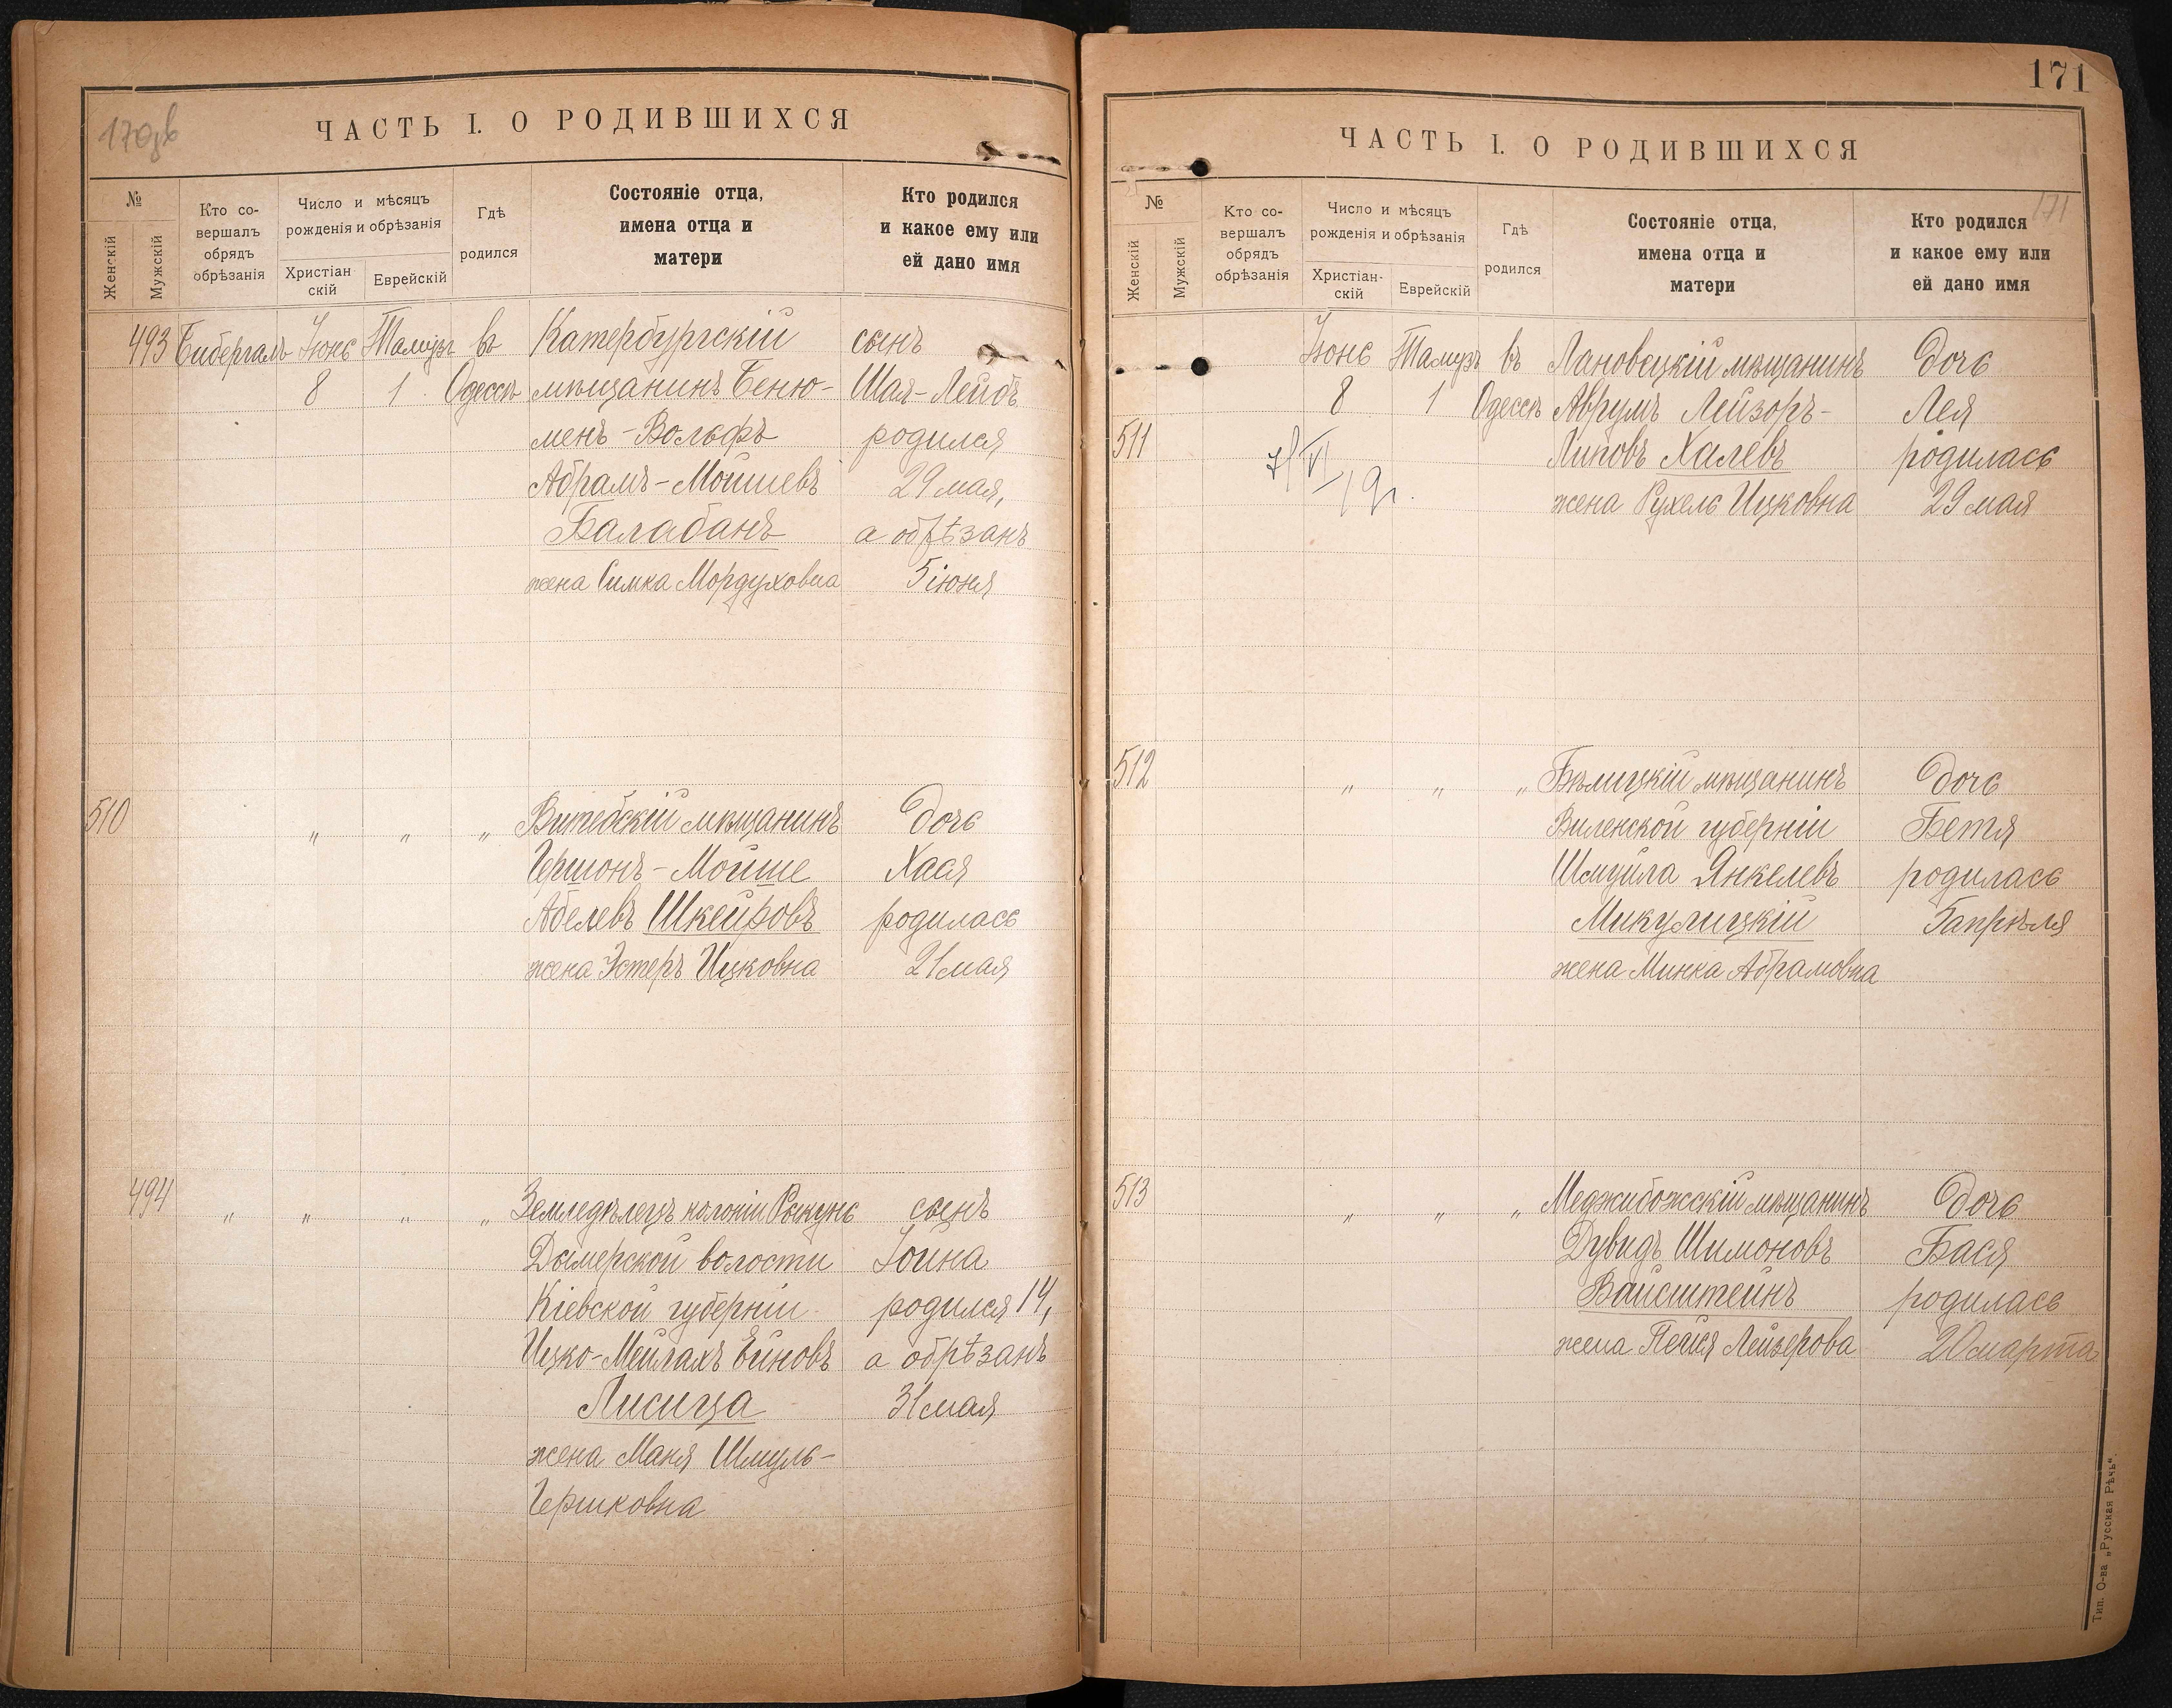 170об
ЧАСТЬ I. О РОДИВШИХСЯ
№
Женскій
Мужскій
Кто со-
вершалъ
обрядъ
обрѣзанія
Число и мѣсяцъ
рожденія и обрѣзанія
Христіан
скій
Еврейскій
Гдѣ
родился
Состояніе отца,
имена отца и
матери
Кто родился
и какое ему или
ей дано имя
493 Бибергалъ Іюнь Тамузъ въ Катербургскій сынъ
8 1 Одессѣ мѣщанинъ Беню- Шая-Лейбъ
менъ-Вольфъ родился
Абрамъ-Мошиевъ 29 мая,
Балабанъ а обрѣзанъ
жена Симка Мордуховна 5 іюня
510 „ „ „ Витебскій мѣщанинъ дочь
Гершонъ-Мойше Хася
Абелевъ Шкейровъ родилась
жена Эстеръ Ицковна 21 мая
494 „ „ „ „ Земледѣлецъ колоніи Рыкунь сынъ
Дымерской волости Іойна
Кіевской губерніи родился 14,
Ицко-Мейлахъ Ейновъ а обрѣзанъ
Лисица 31 мая
жена Маня Шмуль-
Гершковна
171
ЧАСТЬ I. О РОДИВШИХСЯ
171
№
Женскій
Мужскій
Кто со-
вершалъ
обрядъ
обрѣзанія
Число и мѣсяцъ
рожденія и обрѣзанія
Христіан-
скій
Еврейскій
Гдѣ
родился
Состояніе отца,
имена отца и
матери
Кто родился
и какое ему или
ей дано имя
Іюнь Тамузъ въ Лановецкій мѣщанинъ дочь
8 1 Одессѣ Аврумъ Лейзоръ- Лея
511 Липовъ Халевъ родилась
жена Рухель Ицковна 29 мая
512 „ „ „ Бѣлицкій мѣщанинъ дочь
Виленской губерніи Бетя
Шмуйла Янкелевъ родилась
Микулицкій 5 апрѣля
жена Минка Абрамовна
513 „ „ „ Меджибожскій мѣщанинъ дочь
Дувидъ Шимоновъ Бася
Вайсштейнъ родилась
жена Пейся Лейзерова 20 марта
Тип. О-ва „Русская Рѣчь“.